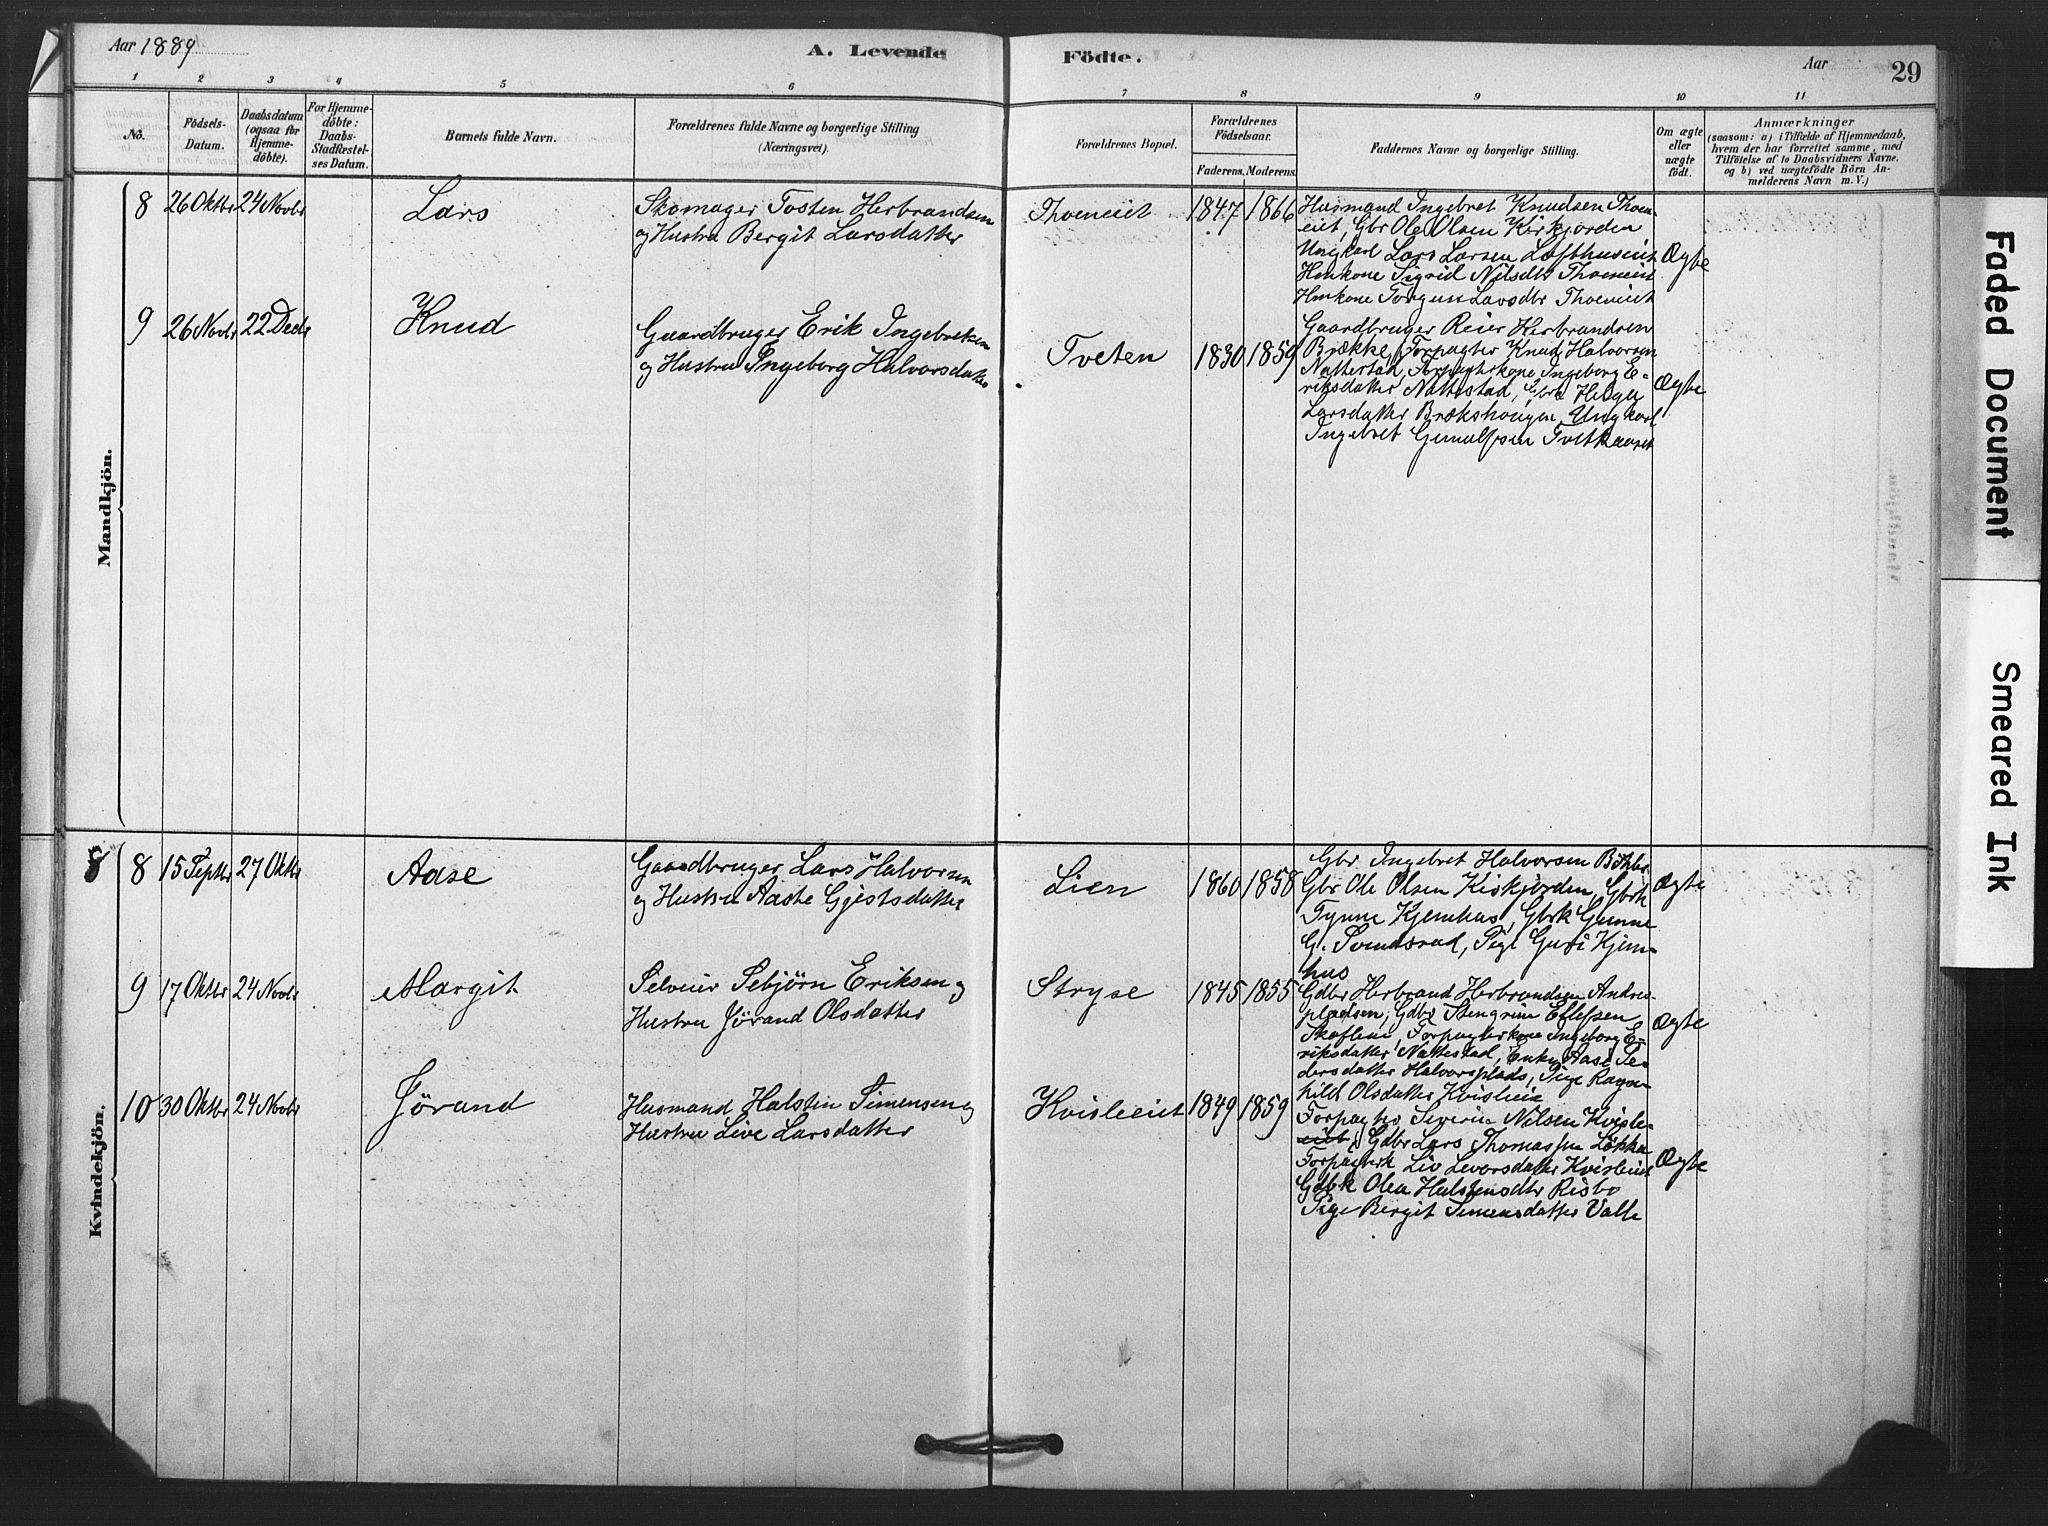 Aar 1889
A. Levende Födte.
Aar
29
1 2 3 4 5 6 7 8 9 10 11
No.
Födsels-Datum.
Daabsdatum (ogsaa for Hjemme-döbte).
For Hjemme-döbte: Daabs-Stadfæstel-ses Datum.
Barnets fulde Navn.
Forældrenes fulde Navne og borgerlige Stilling
(Næringsvei).
Forældrenes Bopæl.
Forældrenes Födselsaar.
Faderens. Moderens.
Faddernes Navne og borgerlige Stilling.
Om ægte eller uægte födt.
Anmærkninger
(saasom: a) i Tilfælde af Hjemmedaab,
hvem der har forrettet samme, med
Tilföielse af to Daabsvidners Navne.
og b) ved uægtefödte Börn An-
melderens Navn m. V.)
Mandkjön.
8 26 Oktbr 24 Novbr Lars
Skomager Tosten Herbrandsen
og Hustru Bergit Larsdatter
Thoeneiet 1847 1866
Husmand Ingebret Knudsen Thoen-
eiet, Gbr Ole Olsen Kirkjorden
Ungkarl Lars Larsen Lofthuseiet
Hmkone Sigrid Nilsdtr Thoeneiet
Hmkone Torguns Larsdtr Thoeneiet
Ægte
9 26 Novbr 22 Decbr Knud
Gaardbruger Erik Ingebretsen
og Hustru Ingeborg Halvorsdatter
Tveten 1830 1859
Gaardbruger Reier Herbrandsen
Brække, Forpagter Knud Halvorsen
Nattestad, Forpagterkone Ingeborg E-
riksdatter Nattestad, Gbrk Helga
Larsdatter Brækshougen Ungkarl
Ingebret Gunulfsen Tvetkaaset
Ægte
Kvindekjön.
8 15 Septbr 27 Oktbr Aase
Gaardbruger Lars Halvorsen
og Hustru Aaste Gjestsdatter
Lien 1860 1858
Gbr Ingebret Halvorsen
Gbr Ole Olsen Kirkjorden, Gbrk
Tynne Kjemhus, Gbrk Gunne
G. Svendsrud, Pige Guri Kjem-
hus
Ægte
9 17 Oktbr 24 Novbr Margit
Selveier Sebjörn Eriksen og
Hustru Jörand Olsdatter
Stryse 1845 1855
Gdbr Herbrand Herbrandsen Andres-
pladsen, Gdbr Stengrim Ellefsen
Skaflein, Forpagterkone Ingeborg E-
riksdatter Nattestad, Enke Aase Pe-
dersdatter Halvorsplads, Pige Ragn-
hild Olsdatter Kvisleeie
Ægte
10 30 Oktbr 24 Novbr Jörand
Husmand Halstin Simensen og
Hustru Live Larsdatter
Kvisleeiet 1849 1859
Forpagter Severin Nilsen Kvisle-
eiet, Gdbr Lars Thomassen Lökka
Forpagterk Liv Levorsdatter Kvisleeiet
Gdbk Olea Halstensdtr Risbo
Pige Bergit Simensdatter Valle
Ægte
Faded Document
Smeared Ink